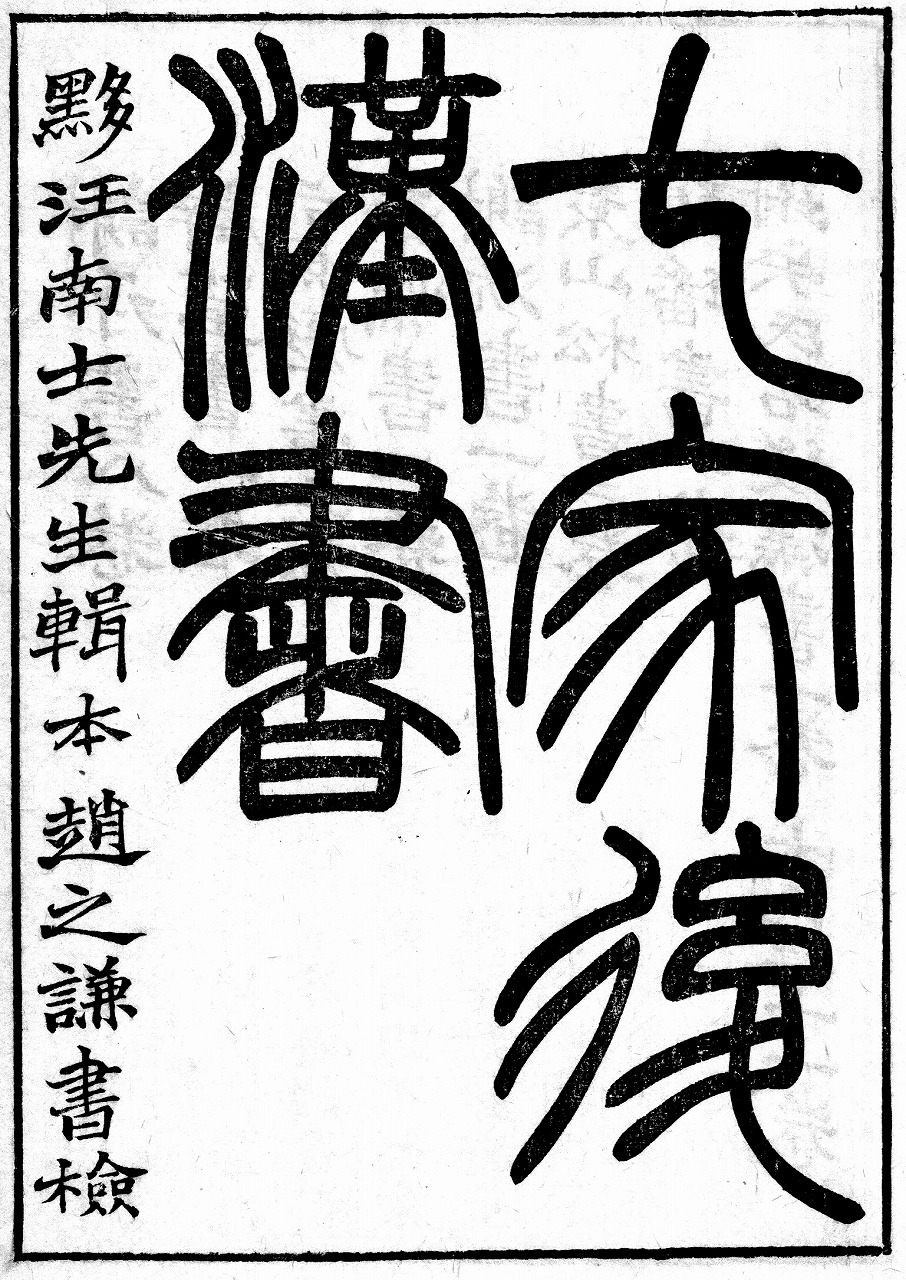 七家後
漢書
黟汪南士先生輯本趙之謙書檢